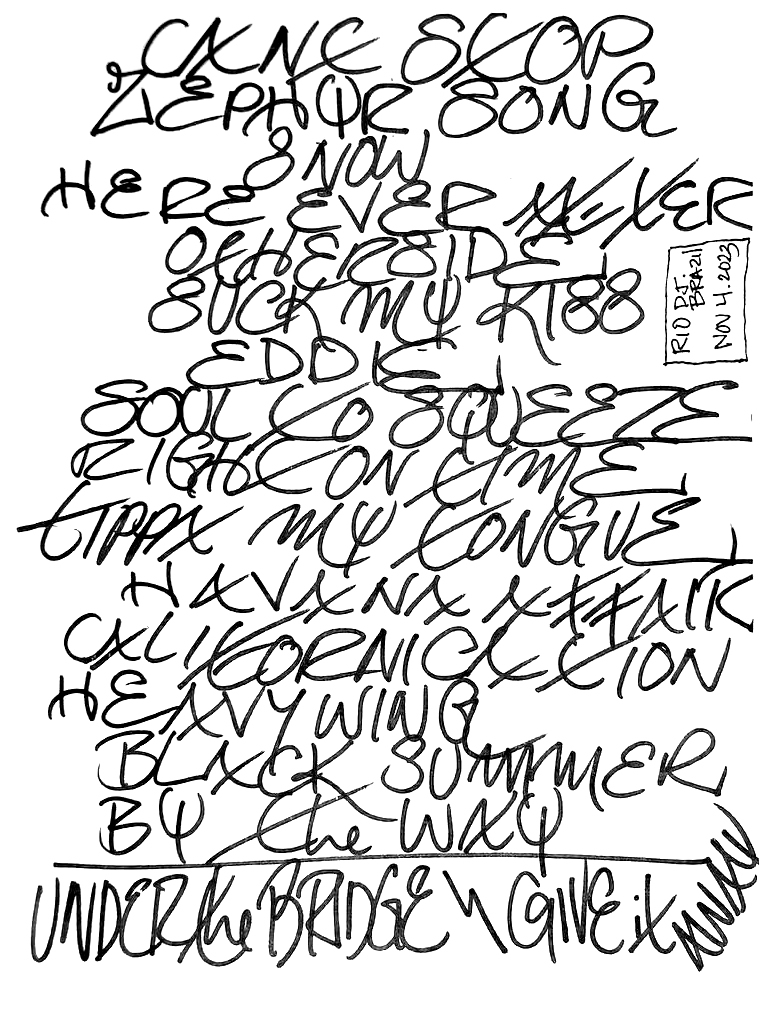 CANT STOP
& ZEPHYR SONG
SNOW
HERE EVER AFTER
OTHERSIDE
SUCK MY KISS
EDDIE
SOUL TO SQUEEZE
RIGHT ON TIME
TIPPA MY TONGUE
HAVANA AFFAIR
CALIFORNICATION
HEAVY WING
BLACK SUMMER
BY the WAY
UNDER the BRIDGE \ GIVE it AWAY
RIO DJ. BRAZIL
NOV 4.2023